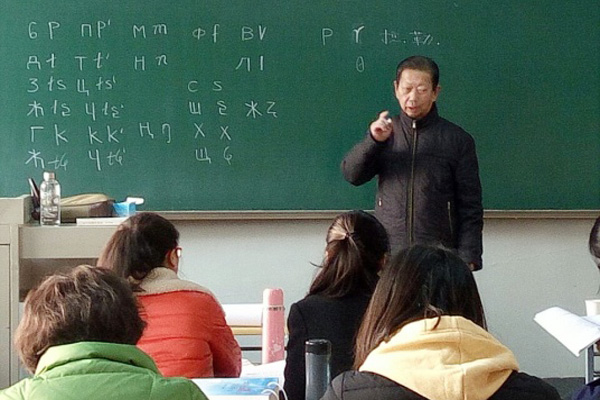 б p п p' м m ф f в v р ɤ
д t т t' н n л l θ
з ts ц ts' с s
ж tʂ ч tʂ' ш ʂ ж ʐ
г k к k' ң ŋ х x
ж tɕ ч tɕ' щ ɕ